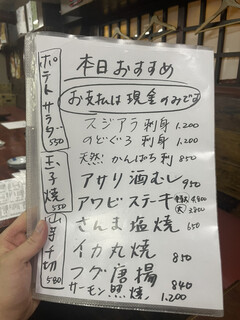 本日おすすめ
お支払は現金のみです
スジアラ刺身 1.200
のどぐろ刺身 1.200
天然!かんぱち刺 850
アサリ酒むし 950
アワビステーキ
さんま塩焼 650
イカ丸焼 850
フグ唐揚 840
サーモン照焼 1.200
ポテトサラダ 550
玉子焼 550
山芋千切 580